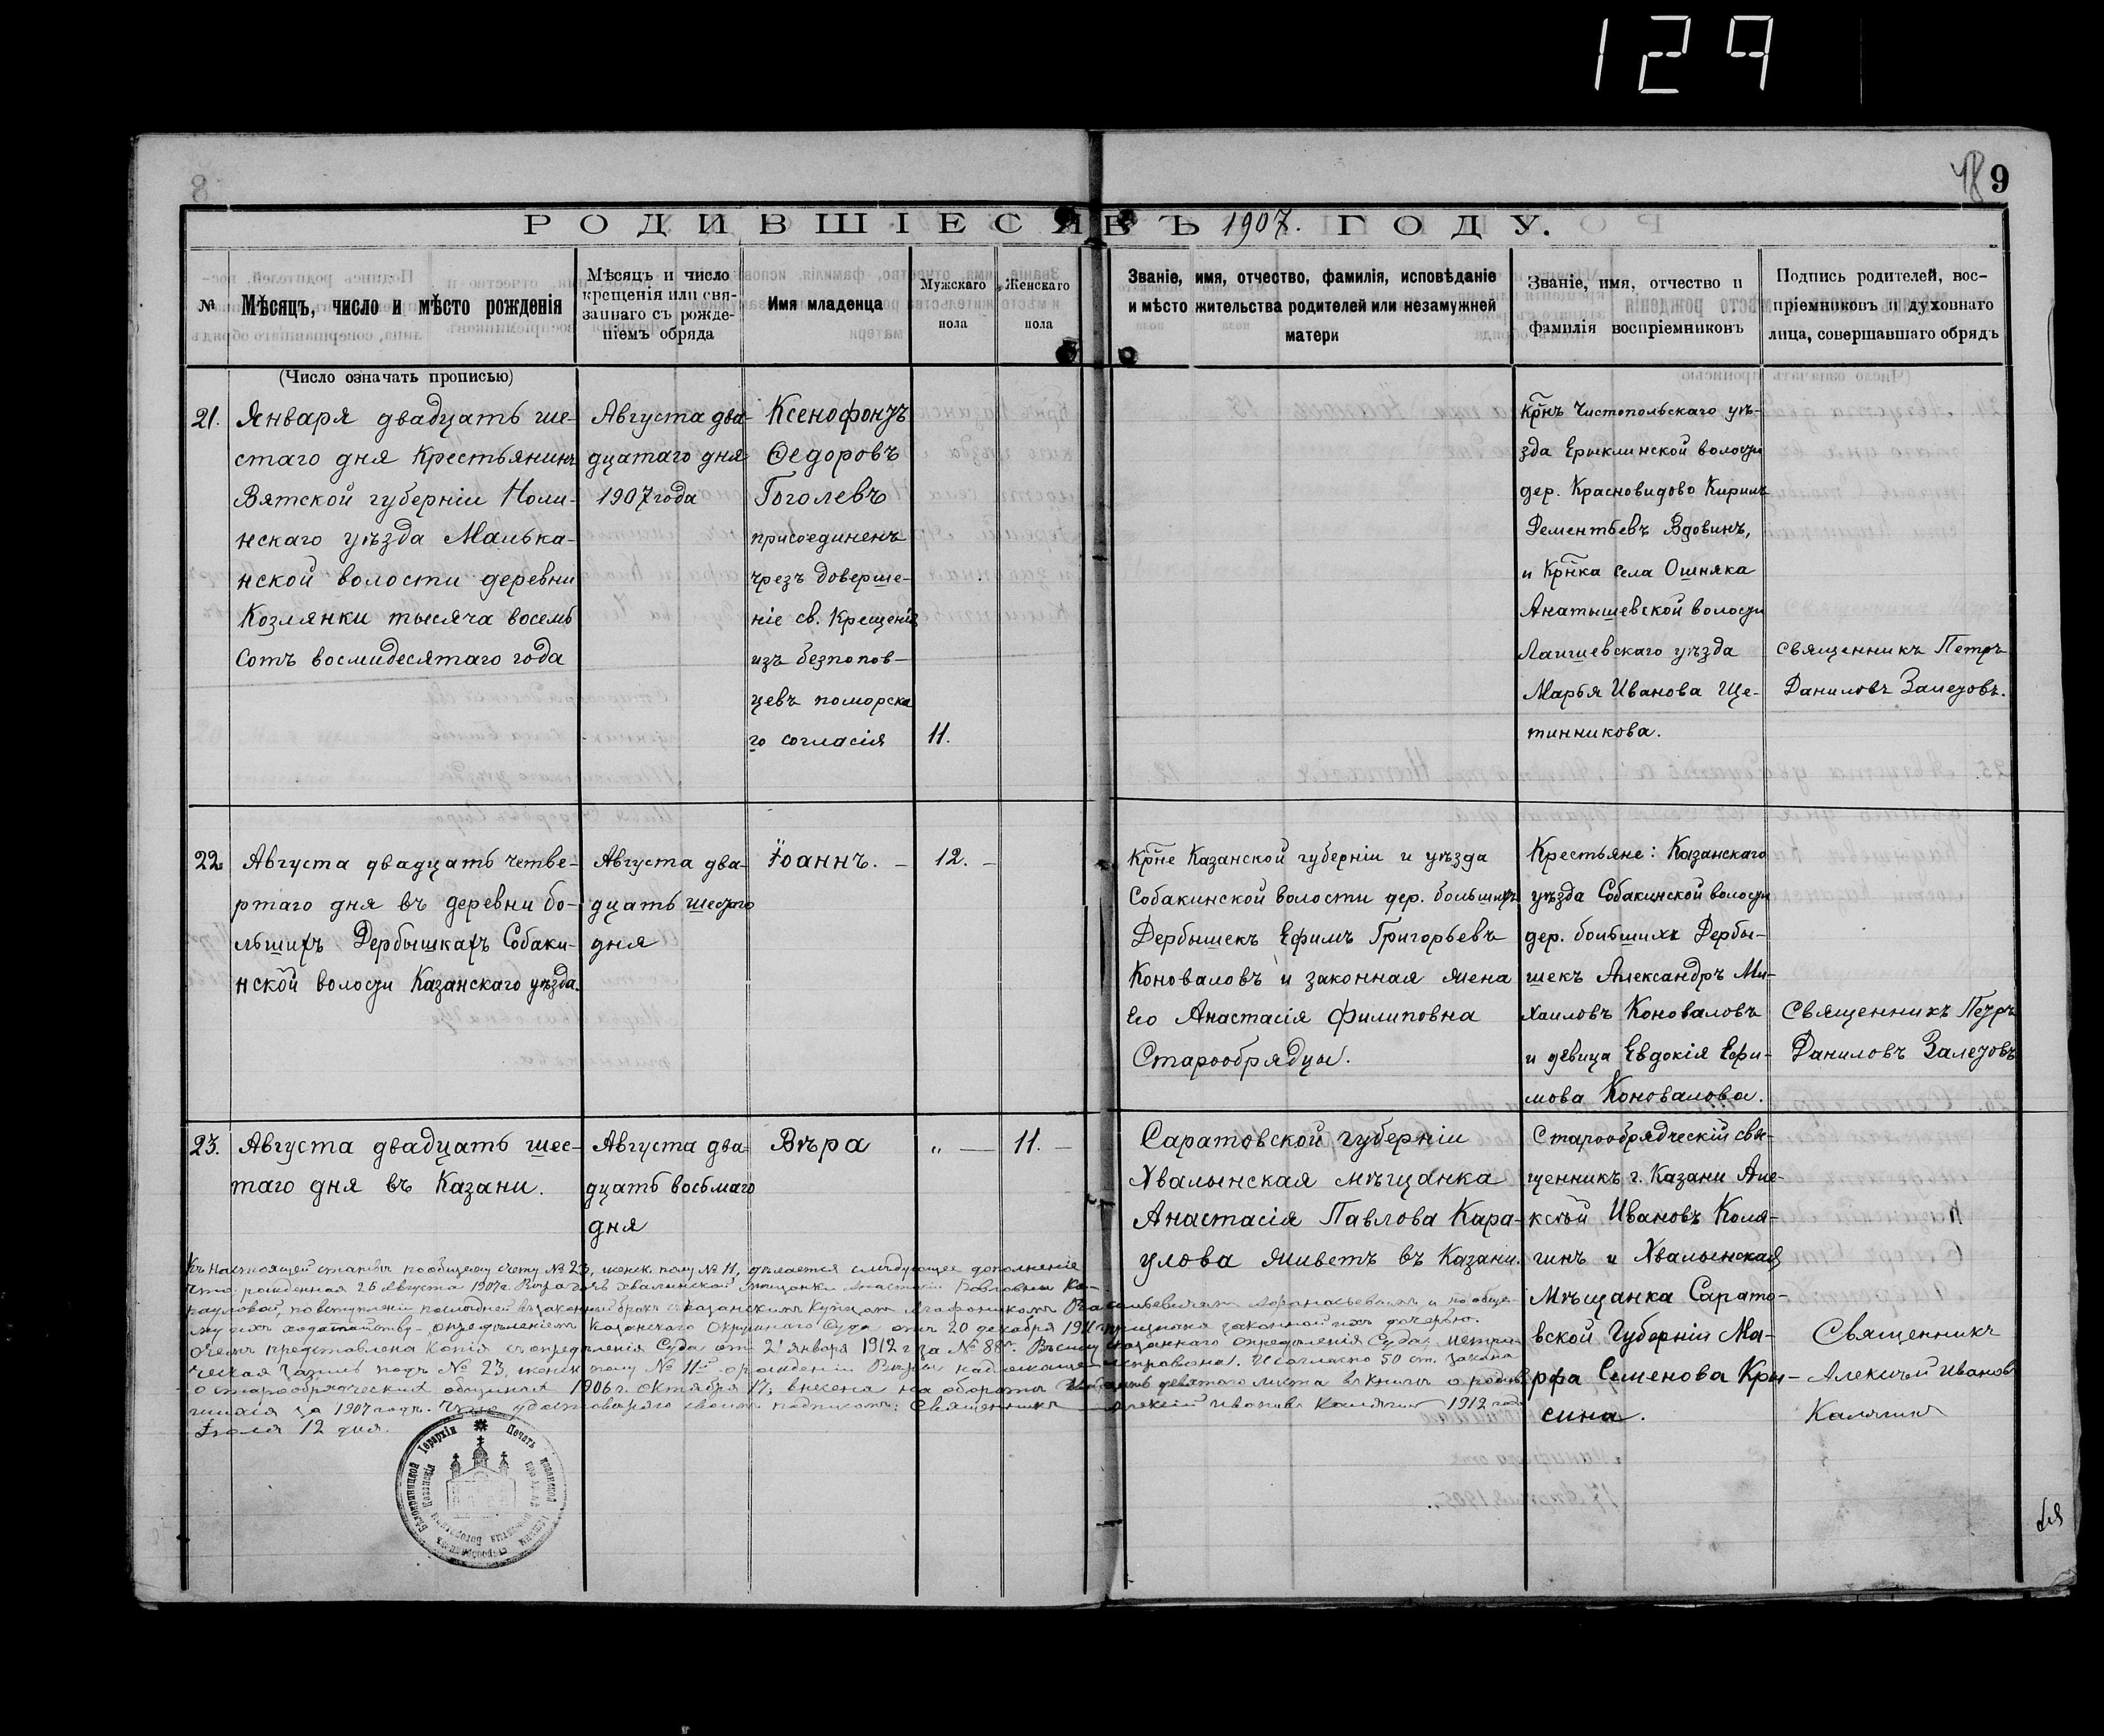 129
8
48 9
РОДИВШІЕСЯ ВЪ 1907. ГОДУ.
№
Мѣсяцъ, число и мѣсто рожденія
Мѣсяцъ и число
крещенія или свя-
заннаго съ рожде-
ніемъ обряда
Имя младенца
Мужскаго
пола
Женскаго
пола
Званіе, имя, отчество, фамилія, исповѣданіе
и мѣсто жительства родителей или незамужней
матери
Званіе, имя, отчество и
фамилія воспріемниковъ
Подпись родителей, вос-
пріемниковъ и духовнаго
лица, совершавшаго обрядъ
(Число означать прописью)
21.
Января двадцать ше-
стаго дня Крестьянинъ
Вятской губерніи Ноли-
нскаго уѣзда Малька-
нской волости деревни
Козлянки тысяча восемь
Сотъ восмидесятаго года
Августа два-
дцатаго дня
1907 года
Ксенофонтъ
Ѳедоровъ
Гоголевъ
присоединенъ
чрезъ доверше-
ніе св. Крещенія
изъ безпопов-
цевъ поморска
го согласія
11.
Крнъ Чистопольскаго уѣ-
зда Ерыклинской волости
дер. Красновидово Кирилъ
Дементьевъ Вдовинъ,
и Крнка села Ошняка
Анатышевской волости
Лаишевскаго уѣзда
Марья Иванова Ще-
тинникова.
Священникъ Петръ
Даниловъ Залетовъ.
22.
Августа двадцать четве-
ртаго дня въ деревни бо-
льшихъ Дербышкахъ Собаки-
нской волости Казанскаго уѣзда.
Августа два-
дцать шестаго
дня
Іоаннъ. -
12. -
Крне Казанской губерніи и уѣзда
Собакинской волости дер. большихъ
Дербышекъ Ефимъ Григорьевъ
Коноваловъ и законная жена
Его Анастасія Филиповна
Старообрядцы.
Крестьяне: Казанскаго
уѣзда Собакинской волости
дер. большихъ Дербы-
шекъ Александръ Ми-
хаиловъ Коноваловъ
и дѣвица Евдокія Ефи-
мова Коновалова.
Священникъ Петръ
Даниловъ Залетовъ
23.
Августа двадцать шес-
таго дня въ Казани.
Августа два-
дцать восьмаго
дня
Вѣра
„ —
11. -
Саратовской губерніи
Хвалынская мѣщанка
Анастасія Павлова Кара-
улова живетъ въ Казани.
Старообрядческій свя-
щенникъ г. Казани Але-
ксѣй Ивановъ Коля-
гинъ и Хвалынская
Мѣщанка Сарато-
вской Губерніи Ма-
рфа Семенова Кри-
сина.
Священникъ
Алексѣй Ивановъ
Калягинъ
Къ настоящей статьѣ по общему счету № 23, женск. полу № 11, дѣлается слѣдующее дополненіе
что рожденная 26 Августа 1907 г. Вѣра отъ Хвалынской мѣщанки Анастасіи Павловны Ка-
рауловой, по вступленіи послѣдней въ законный бракъ съ Казанскимъ Купцомъ Агафоникомъ Афанасьевымъ и по обще-
му ихъ ходатайству - опредѣленіемъ Казанскаго Окружнаго Суда отъ 20 декабря 1911 признана законной ихъ дочерью.
О чемъ представлена Копія съ опредѣленія Суда отъ 21 января 1912 г за № 885. Въ силу указаннаго опредѣленія Суда, метри-
ческая запись подъ № 23, женск полу № 11й о рожденіи Вѣры надлежаще исправлена. И согласно 50 ст. закона
о старообрядческихъ общинахъ 1906 г. октября 17, внесена на оборотѣ девятаго листа въ книги о родив-
шихся за 1907 годъ. Что удостоверяю своимъ подписомъ: Священникъ Алексій Ивановъ Калягинъ 1912 года
Іюля 12 дня.